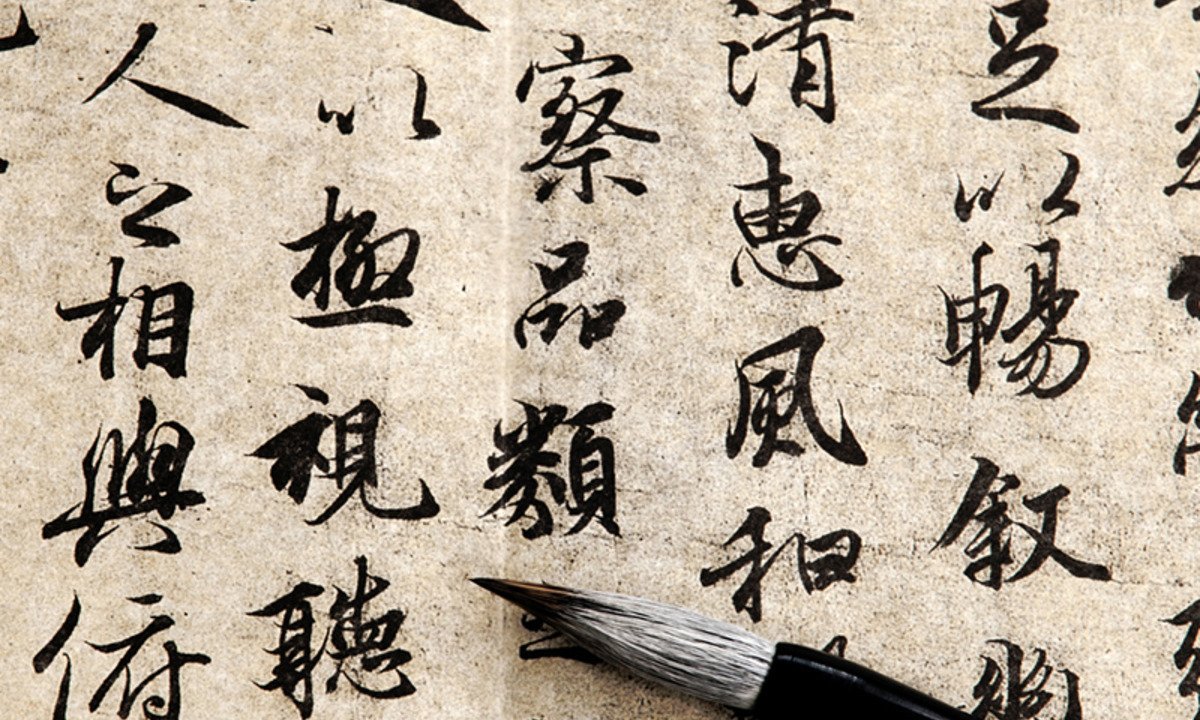 足以暢叙幽
清惠風和
察品類
以極視聽
人之相與俯